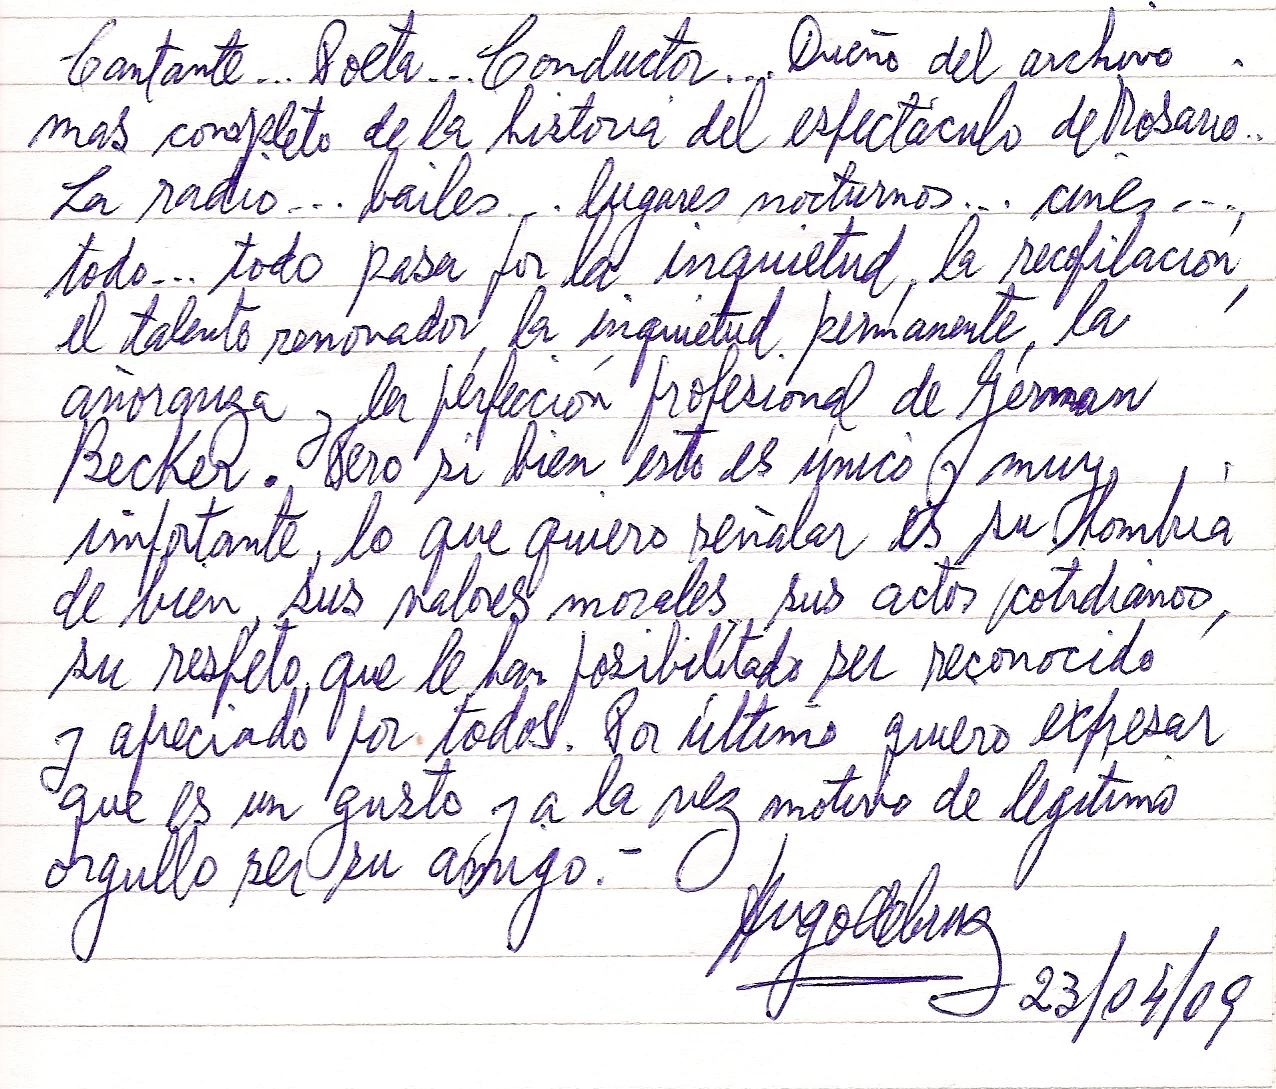 Cantante... Poeta... Conductor... Dueño del archivo
mas completo de la historia del espectáculo de Rosario..
La radio... bailes... lugares nocturnos... cines...,
todo... todo pasa por la inquietud, la recopilación,
el talento renovador, la inquietud permanente, la
añoranza y la perfección profesional de Germán
Becker. Pero si bien esto es único y muy
importante, lo que quiero señalar es su Hombría
de bien, sus valores morales, sus actos cotidianos,
su respeto, que le han posibilitado ser reconocido
y apreciado por todos. Por último quiero expresar
que es un gusto y a la vez motivo de legítimo
orgullo ser su amigo.-
Hugo
23/04/09